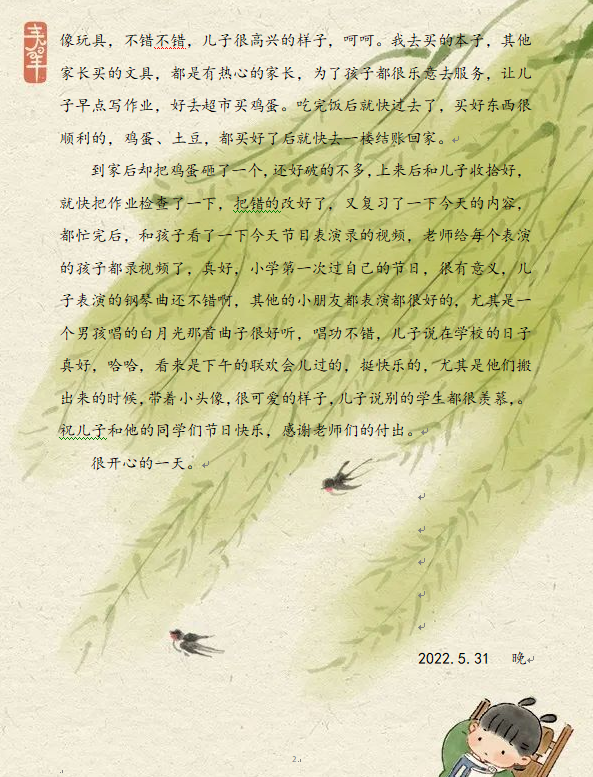 像玩具，不错不错，儿子很高兴的样子，呵呵。我去买的本子，其他
家长买的文具，都是有热心的家长，为了孩子都很乐意去服务，让儿
子早点写作业，好去超市买鸡蛋。吃完饭后就快过去了，买好东西很
顺利的，鸡蛋、土豆，都买好了后就快去一楼结账回家。
到家后却把鸡蛋砸了一个，还好破的不多，上来后和儿子收拾好，
就快把作业检查了一下，把错的改好了，又复习了一下今天的内容，
都忙完后，和孩子看了一下今天节目表演录的视频，老师给每个表演
的孩子都录视频了，真好，小学第一次过自己的节日，很有意义，儿
子表演的钢琴曲还不错啊，其他的小朋友都表演都很好的，尤其是一
个男孩唱的白月光那首曲子很好听，唱功不错，儿子说在学校的日子
真好，哈哈，看来是下午的联欢会儿过的，挺快乐的，尤其是他们搬
出来的时候，带着小头像，很可爱的样子，儿子说别的学生都很羡慕，。
祝儿子和他的同学们节日快乐，感谢老师们的付出。
很开心的一天。
2022.5.31 晚
2